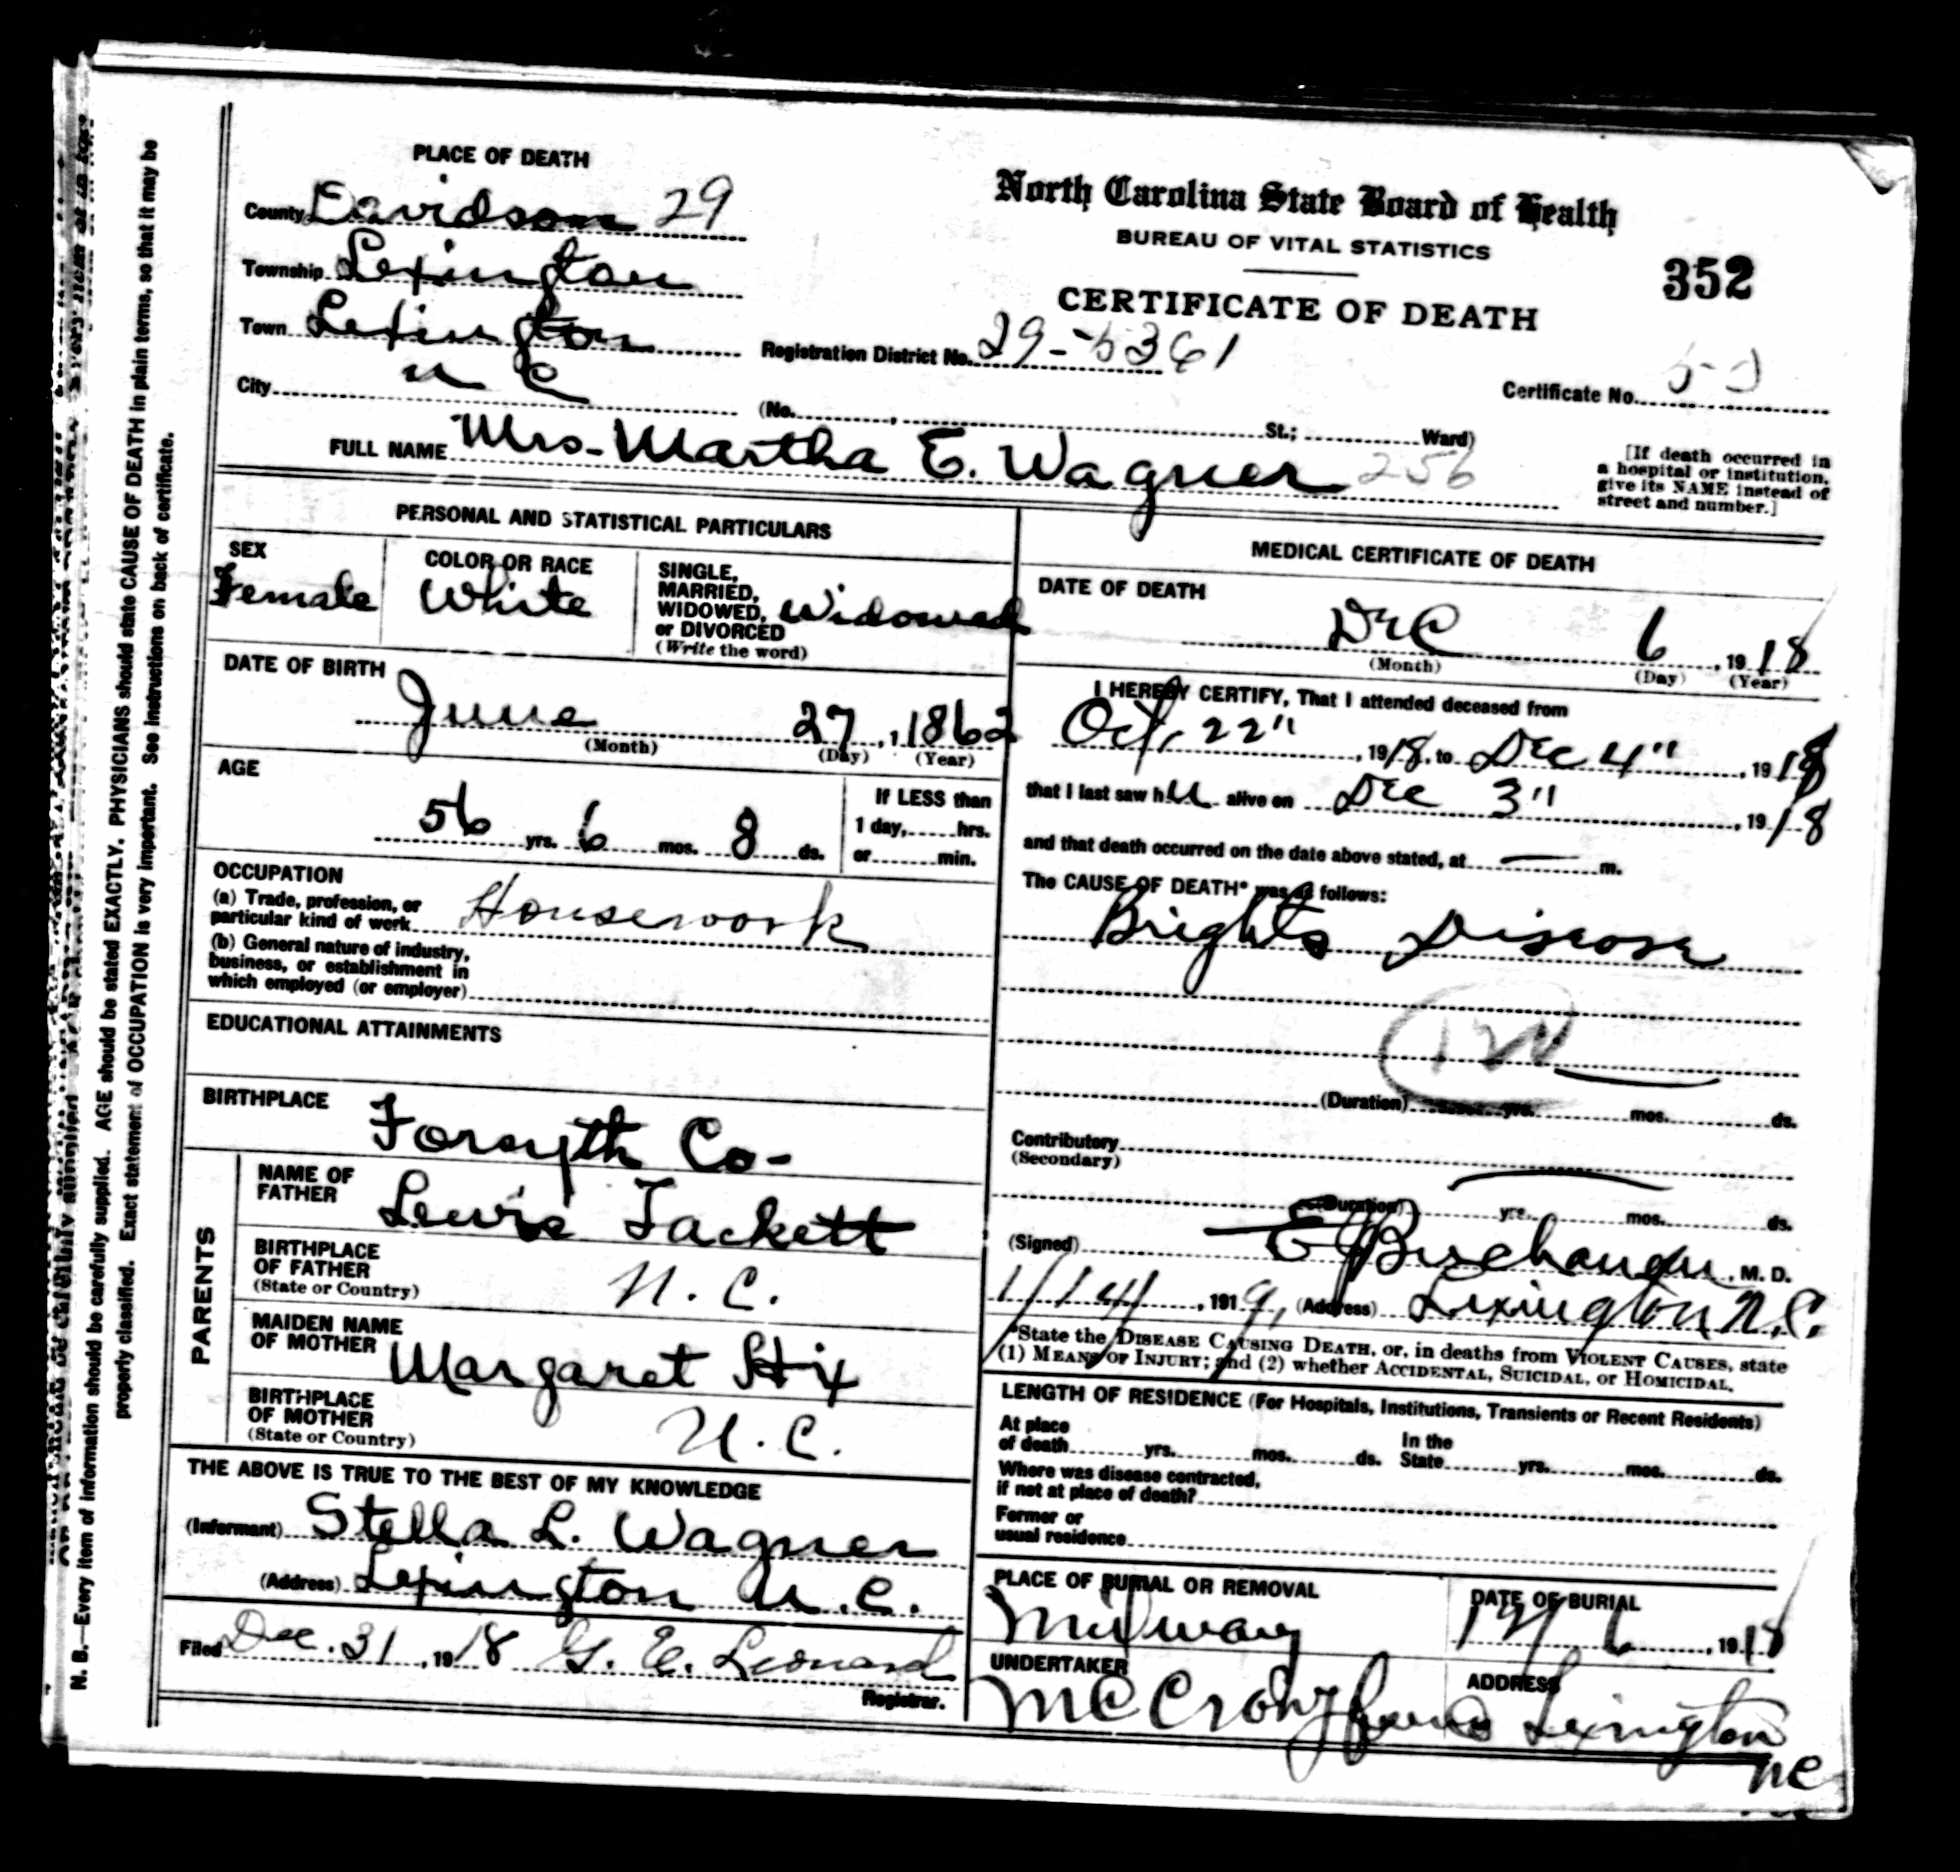 PLACE OF DEATH
County Davidson 29
Township Lexington
Town Lexington
N C
City
North Carolina State Board of Health
BUREAU OF VITAL STATISTICS
352
CERTIFICATE OF DEATH
Registration District No. 29-5361
Certificate No.
(No. , St.; Ward)
FULL NAME Mrs- Martha E. Wagner 256
[If death occurred in
a hospital or institution,
give its NAME instead of
street and number.]
PERSONAL AND STATISTICAL PARTICULARS
SEX
Female
COLOR OR RACE
White
SINGLE,
MARRIED,
WIDOWED,
or DIVORCED
(Write the word)
Widowed
DATE OF BIRTH
June 27, 1862
(Month) (Day) (Year)
AGE
56 yrs. 6 mos. 8 ds.
If LESS than
1 day, hrs.
or min.
OCCUPATION
(a) Trade, profession, or
particular kind of work Housework
(b) General nature of industry,
business, or establishment in
which employed (or employer)
EDUCATIONAL ATTAINMENTS
BIRTHPLACE
Forsyth Co-
PARENTS
NAME OF
FATHER
Lewis Tackett
BIRTHPLACE
OF FATHER
(State or Country)
N. C.
MAIDEN NAME
OF MOTHER
Margaret Hix
BIRTHPLACE
OF MOTHER
(State or Country)
N. C.
THE ABOVE IS TRUE TO THE BEST OF MY KNOWLEDGE
(Informant) Stella L. Wagner
(Address) Lexington N.C.
Filed Dec. 31, 1918 G. E. Leonard
Registrar.
MEDICAL CERTIFICATE OF DEATH
DATE OF DEATH
Dec 6, 1918
(Month) (Day) (Year)
I HEREBY CERTIFY, That I attended deceased from
Oct, 22", 1918, to Dec 4", 1918
that I last saw her alive on Dec 3", 1918
and that death occurred on the date above stated, at — m.
The CAUSE OF DEATH* was as follows:
Brights Disease
120
(Duration) yrs. mos. ds.
Contributory
(Secondary)
(Duration) yrs. mos. ds.
(Signed) E J Buchanan, M. D.
1/14/, 1919, (Address) Lexington N.C.
*State the DISEASE CAUSING DEATH, or, in deaths from VIOLENT CAUSES, state
(1) MEANS OF INJURY; and (2) whether ACCIDENTAL, SUICIDAL, or HOMICIDAL.
LENGTH OF RESIDENCE (For Hospitals, Institutions, Transients or Recent Residents)
At place
of death yrs. mos. ds.
In the
State yrs. mos. ds.
Where was disease contracted,
if not at place of death?
Former or
usual residence
PLACE OF BURIAL OR REMOVAL
Midway
DATE OF BURIAL
12/6, 1918
UNDERTAKER
McCrary
ADDRESS
Lexington
NC
N. B.—Every item of information should be carefully supplied. AGE should be stated EXACTLY. PHYSICIANS should state CAUSE OF DEATH in plain terms, so that it may be
properly classified. Exact statement of OCCUPATION is very important. See instructions on back of certificate.